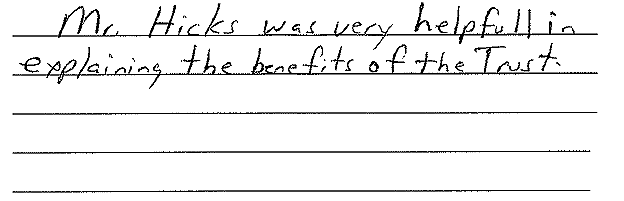 Mr. Hicks was very helpfull in
explaining the benefits of the Trust.